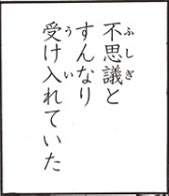 不思議と
すんなり
受け入れていた